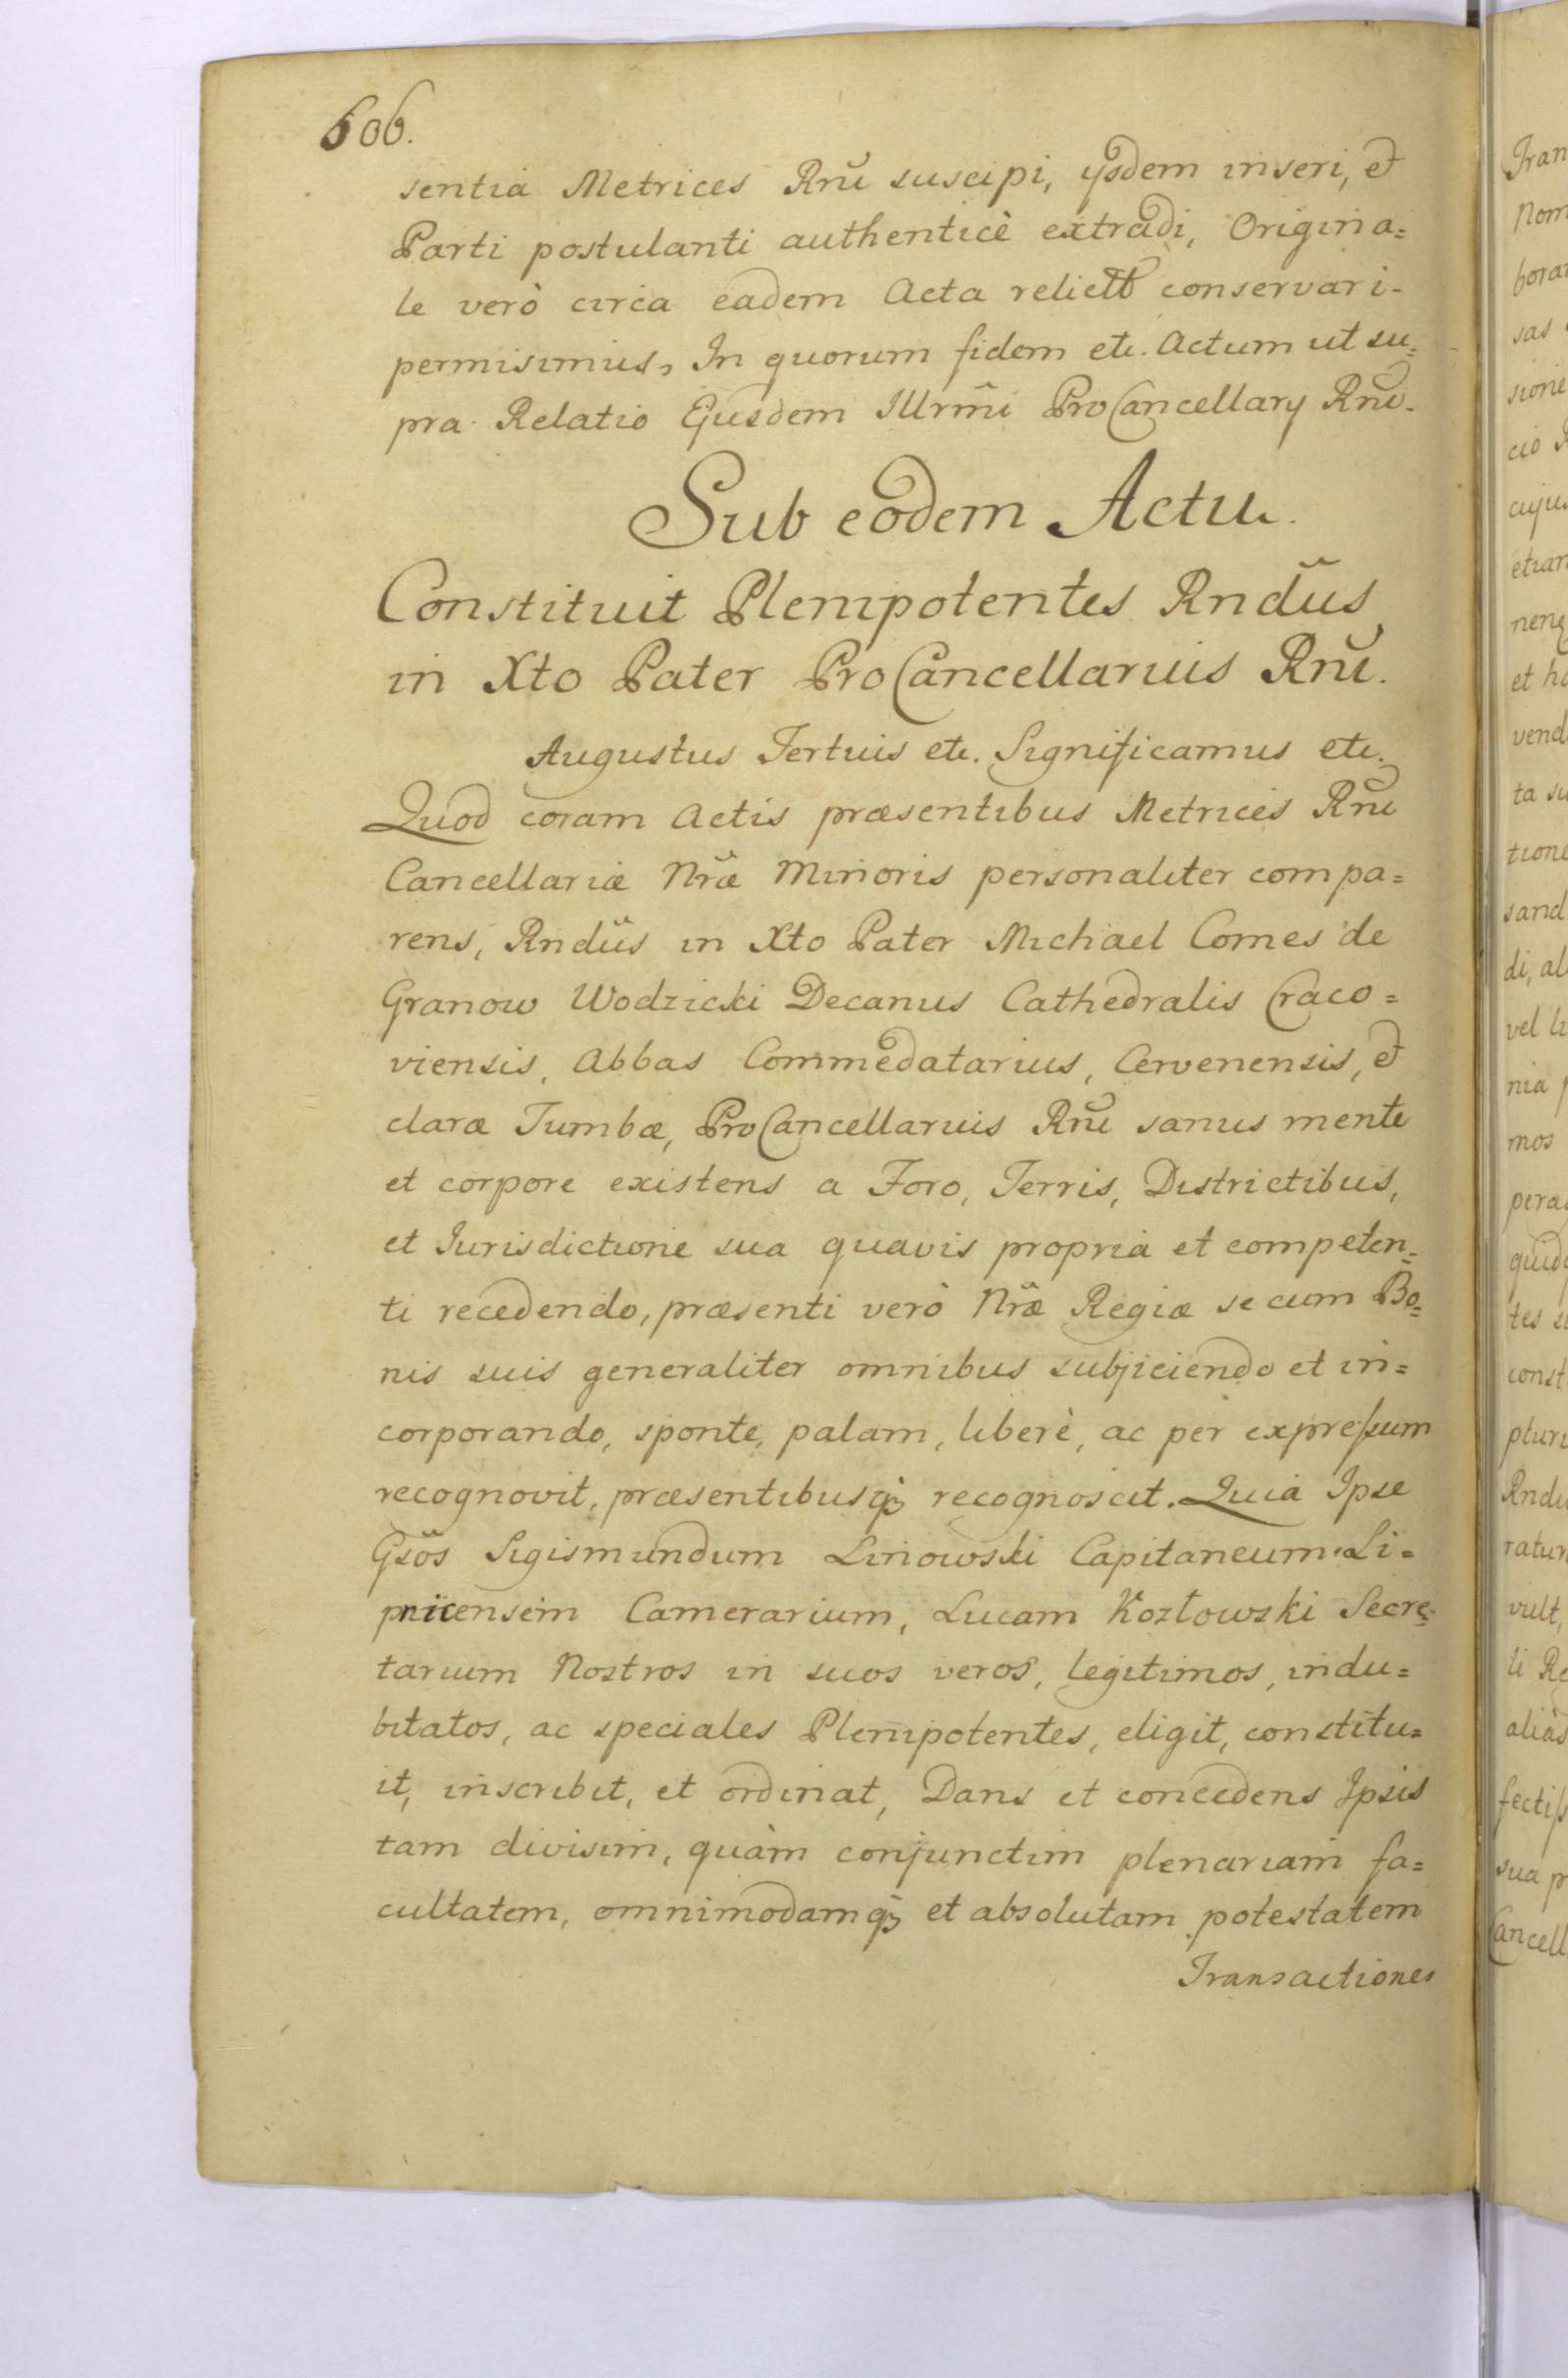 606.
sentia Metrices Rnĩ suscipi, ijsdem inseri, et
Parti postulanti authenticè extradi, Origina=
le verò circa eadem Acta relicto conservari-
permisimus, In quorum fidem etc. Actum ut su=
pra. Relatio Ejusdem Illrmĩ ProCancellarij Rnĩ.
Sub eodem Actu.
Constituit Plenipotentes Rndũs
in Xto Pater ProCancellarius Rnĩ.
Augustus Tertius etc. Significamus etc.
Quod coram Actis præsentibus Metrices Rnĩ
Cancellariæ Nræ̃ Minoris personaliter compa=
rens, Rndũs in Xto Pater Michael Comes de
Granow Wodzicki Decanus Cathedralis Craco=
viensis, Abbas Commedatarius, Cervenensis, et
claræ Tumbæ, ProCancellarius Rnĩ sanus mente
et corpore existens a Foro, Terris, Districtibus,
et Jurisdictione sua quavis propria et competen=
ti recedendo, præsenti verò Nræ̃ Regiæ se cum Bo=
nis suis generaliter omnibus subjiciendo et in=
corporando, sponte, palam, liberè, ac per expressum
recognovit, præsentibusq; recognoscit. Quia Ipse
Gsõs Sigismundum Linowski Capitaneum Li=
pnicensem Camerarium, Lucam Kozłowski Secre=
tarium Nostros in suos veros, legitimos, indu=
bitatos, ac speciales Plenipotentes, eligit, constitu=
it, inscribit, et ordinat, Dans et concedens Ipsis
tam divisim, quàm conjunctim plenariam fa=
cultatem, omnimodamq; et absolutam potestatem
Transactiones